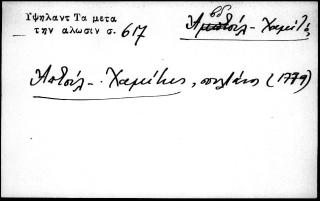 Υψηλαντ Τα μετα
την αλωσιν σ. 617
Χαμίτ
Αβδούλ - Χαμίτης, σουλτάνος (1779)